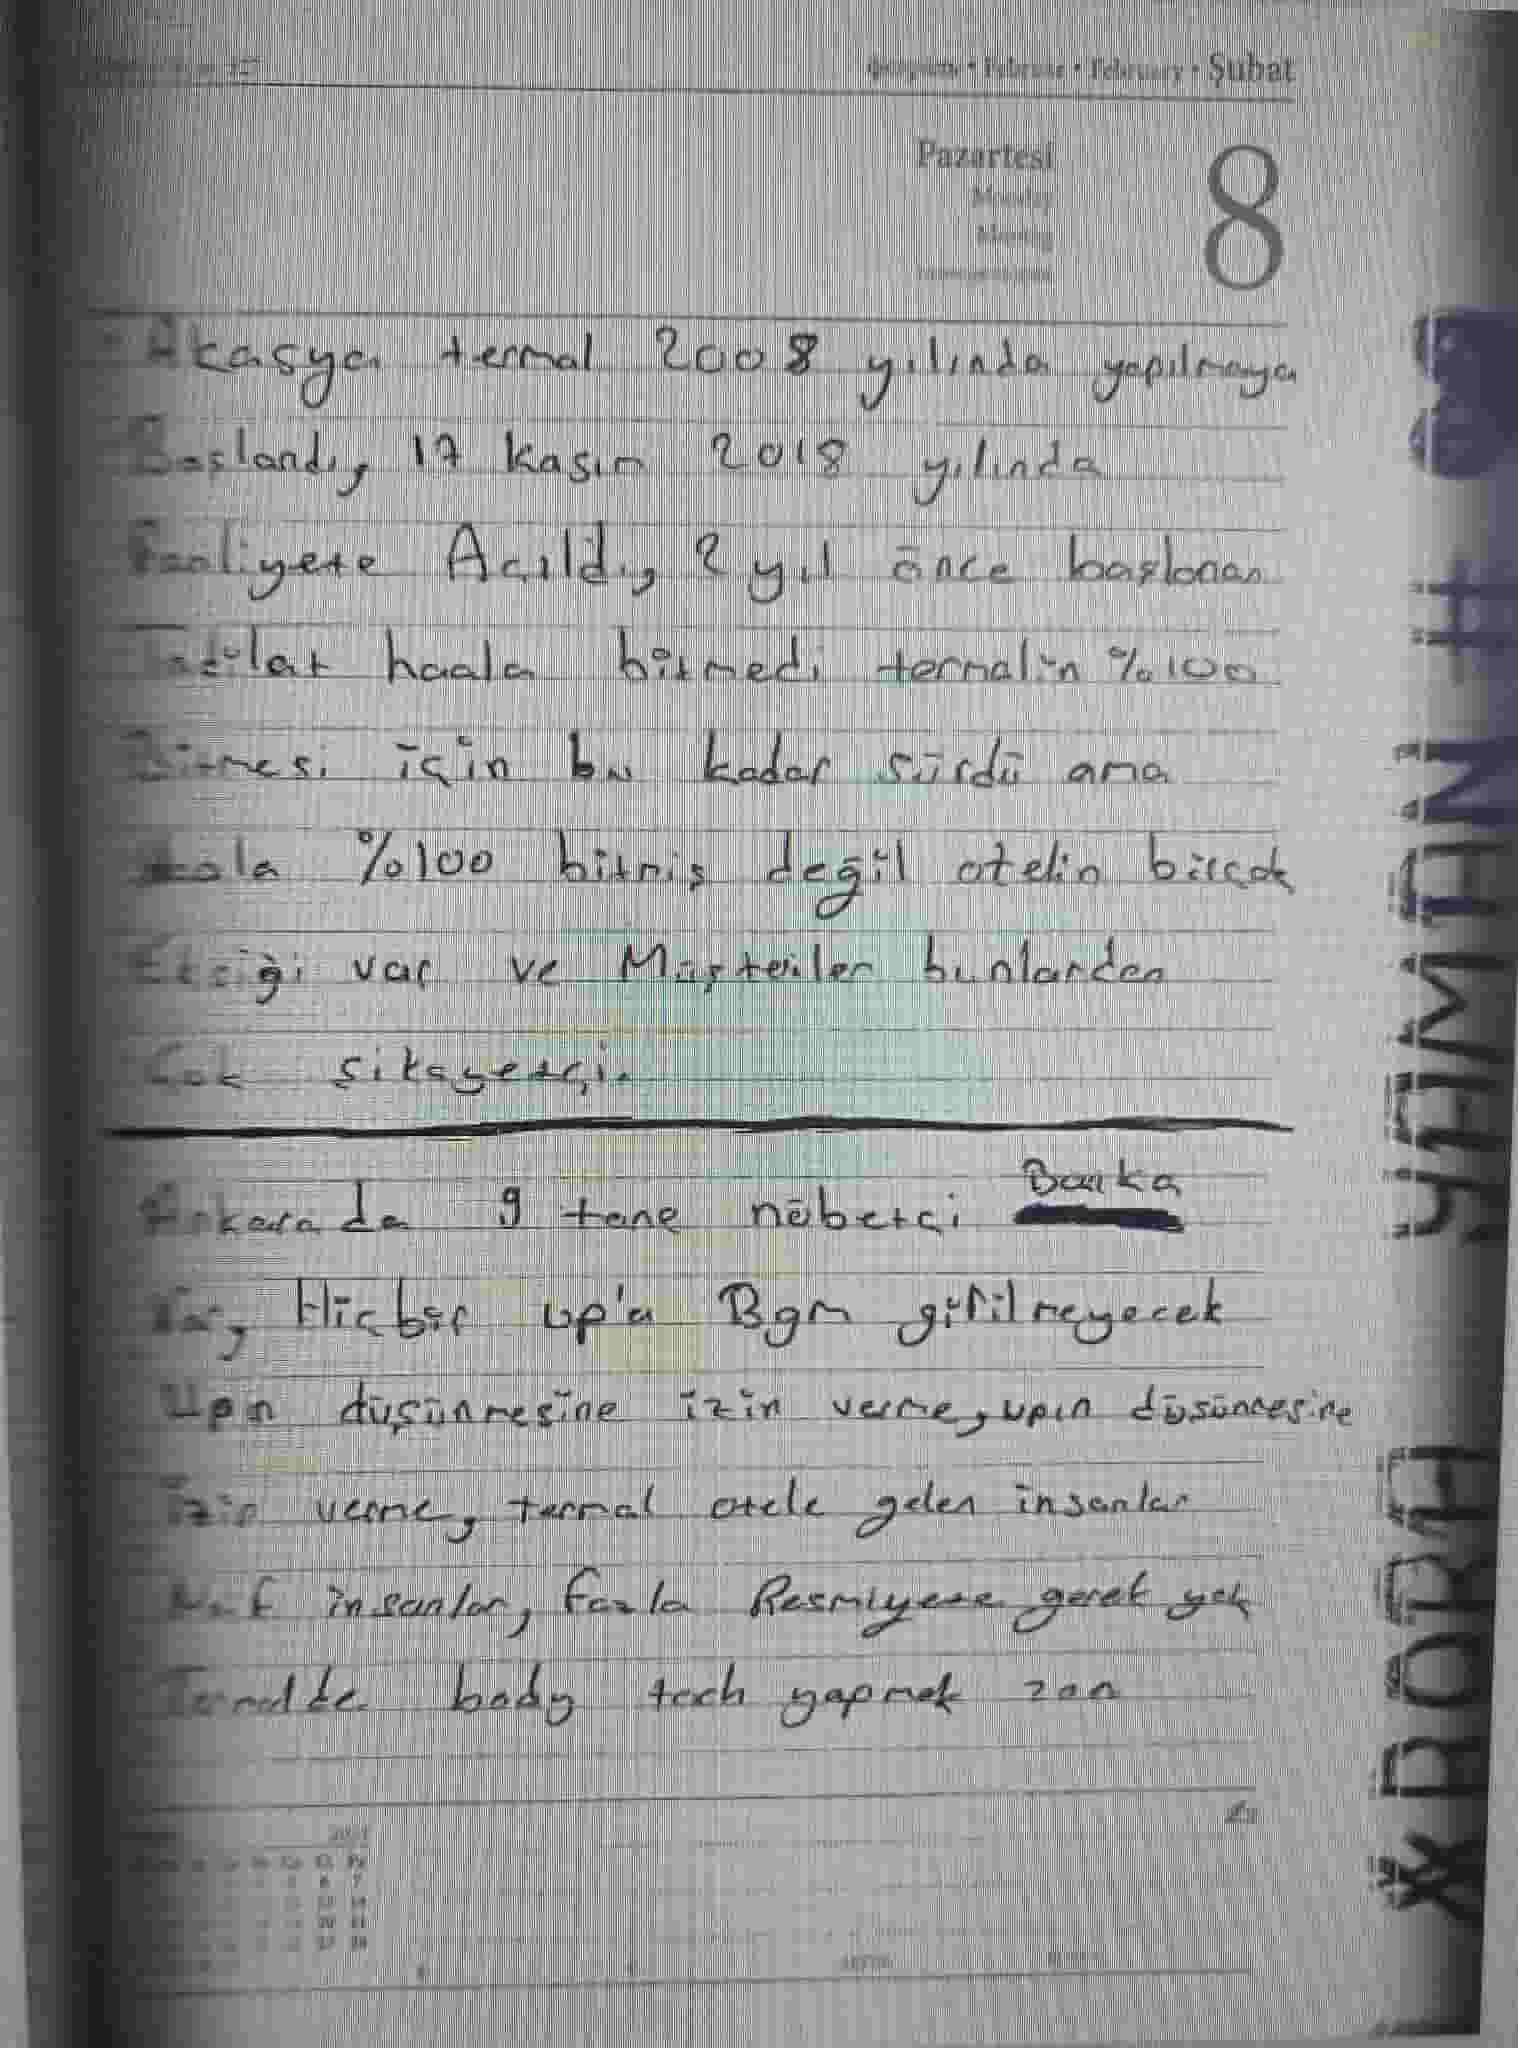 февраль • Februar • February • Şubat
Pazartesi
Monday
Montag
8
Akasya termal 2008 yılında yapılmaya
Başlandı, 17 kasım 2018 yılında
Faaliyete Açıldı, 2 yıl önce başlanan
Tadilat haala bitmedi termalin %100
Bitmesi için bu kadar sürdü ama
hala %100 bitmiş değil otelin birçok
Eksiği var ve Müşteriler bunlardan
Çok şikayetçi.
Ankara da 9 tane nöbetçi Banka
Var, Hiçbir up'a Bgm girilmeyecek
Upın düşünmesine izin verme, upın düşünmesine
İzin verme, termal otele gelen insanlar
insanlar, fazla Resmiyete gerek yok
Termalde body tech yapmak